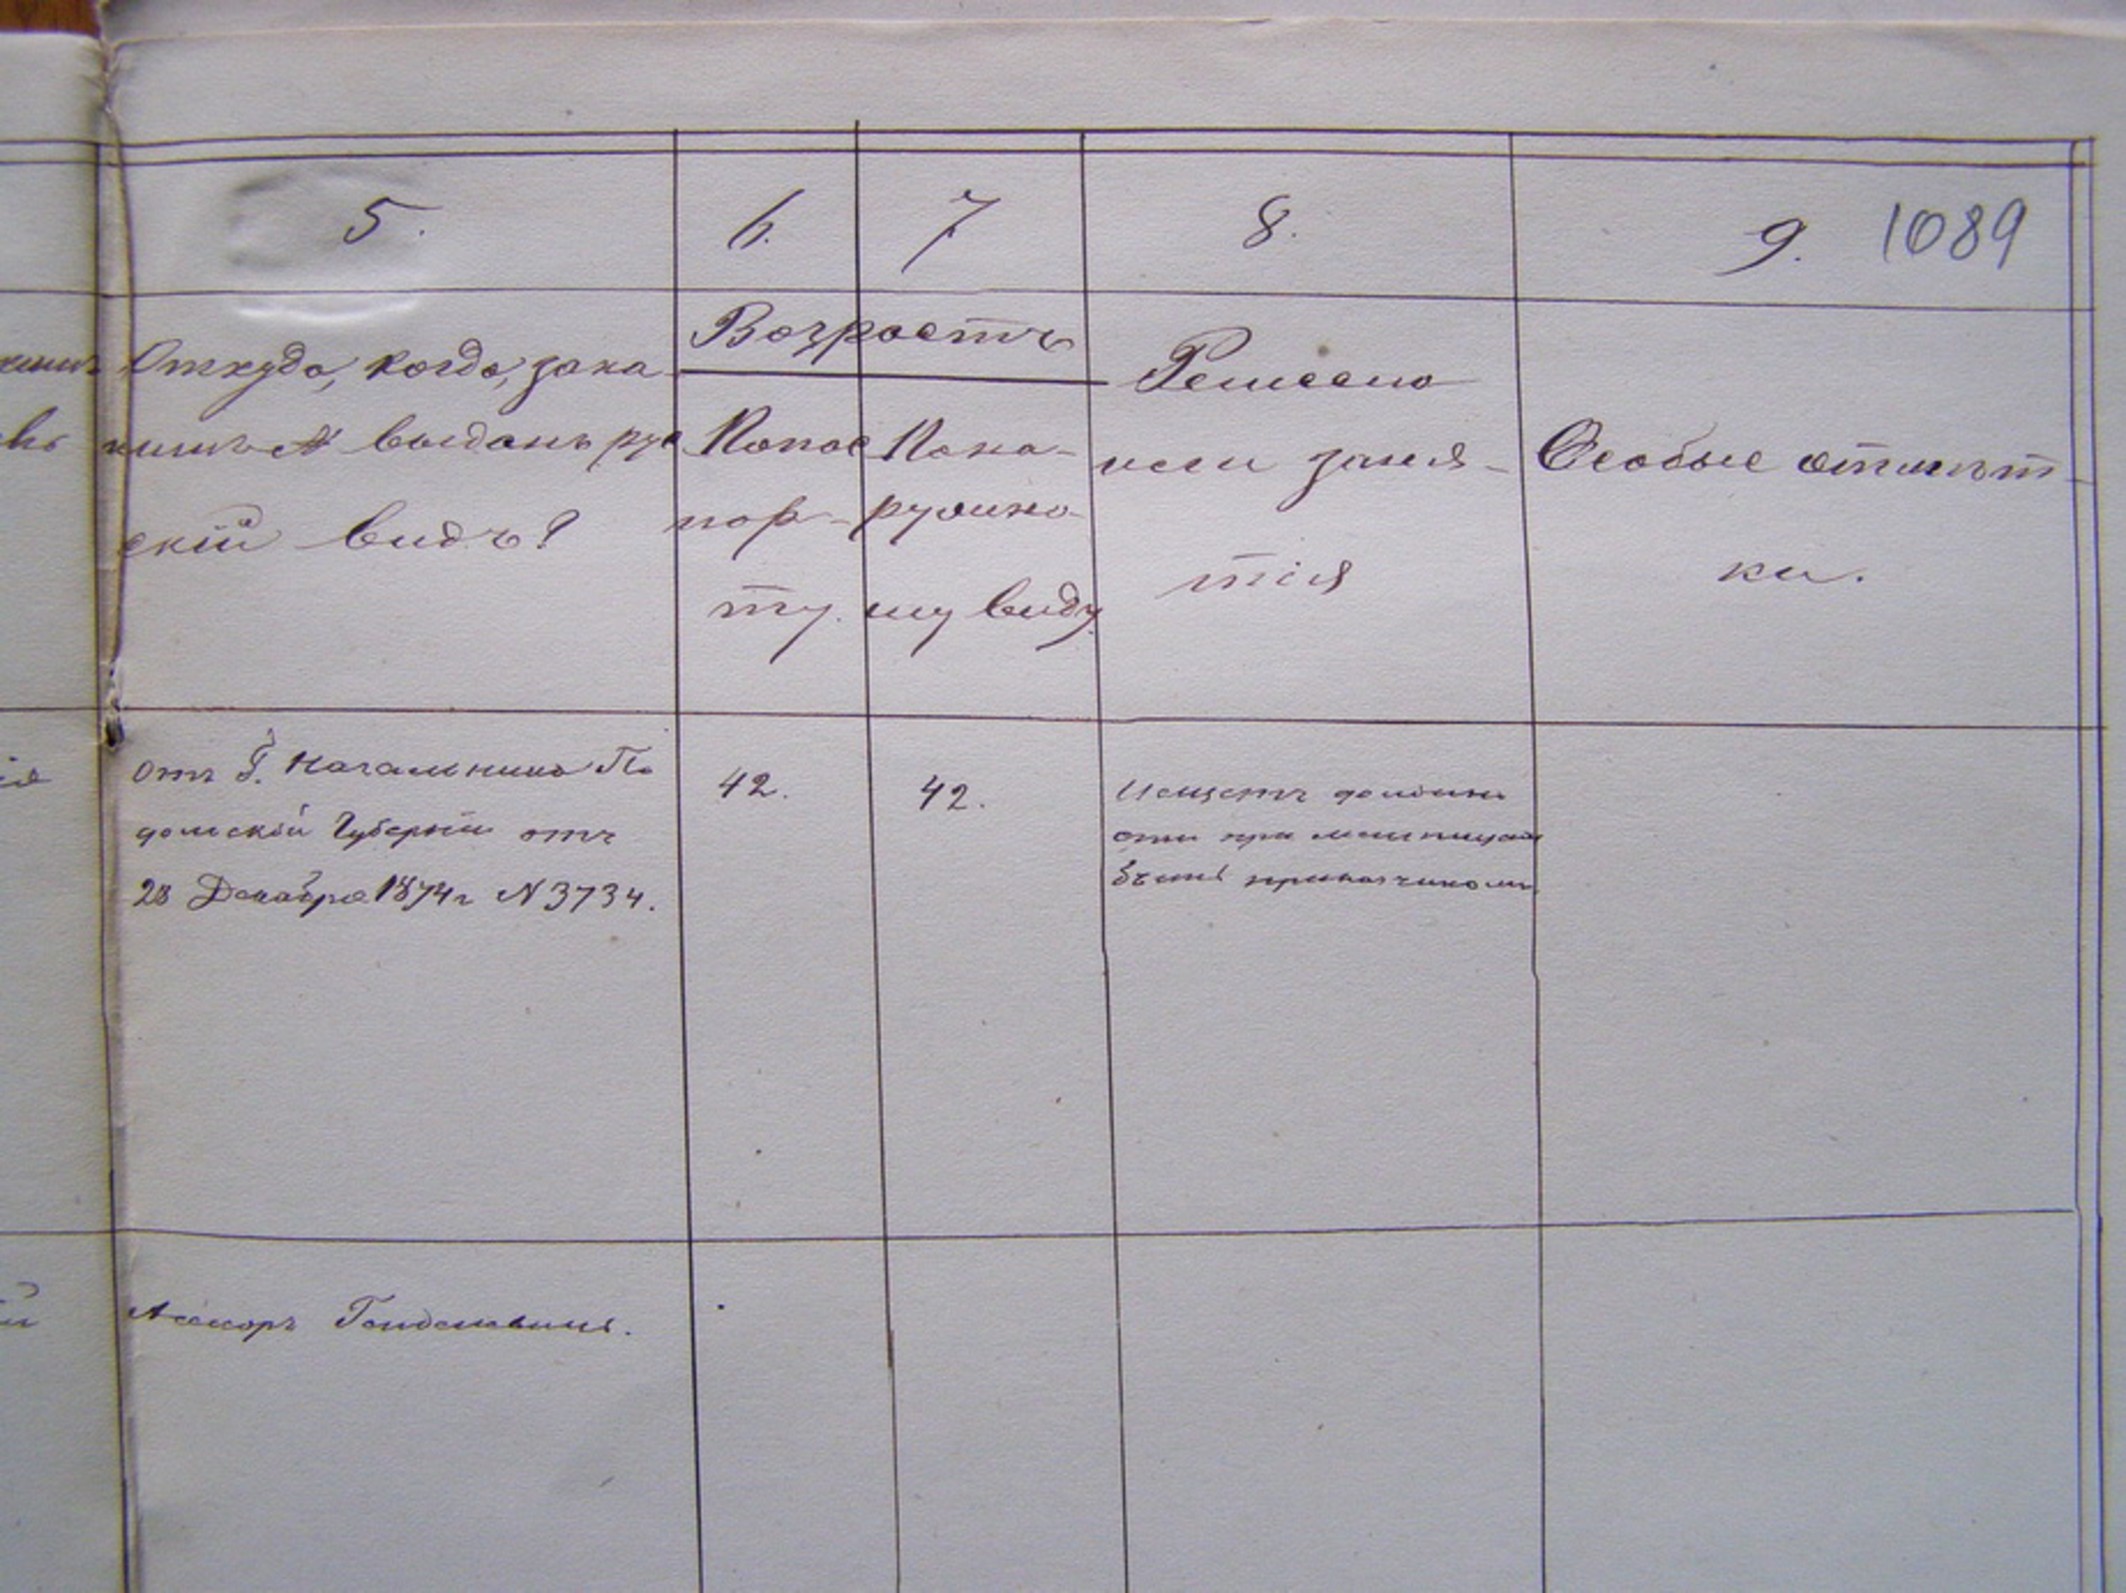 5.
6.
7
8.
9.
1089
Откуда, когда, зака
кимъ № выданъ рус
скій видъ?
Возрастъ
Попас
пор-
ту.
Пона-
русско-
му виду
Ремесло
или заня-
тія
Особые отмѣт-
ки.
отъ Г. Начальника По
дольской Губерніи отъ
28 Декабря 1874 г N 3734.
42.
42.
Ищетъ должн
ости при
быть приказчикомъ
Ассесоръ